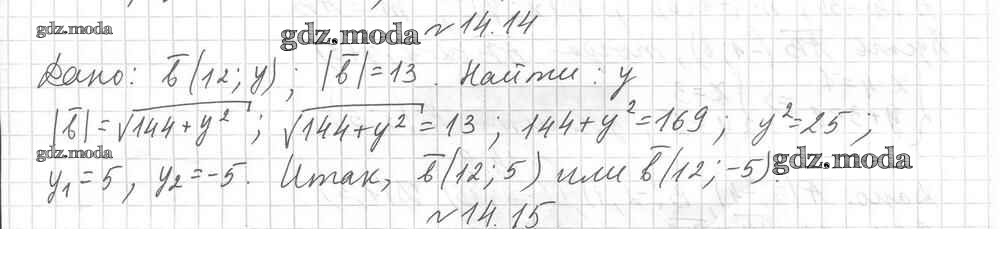 gdz.moda
gdz.moda
№ 14.14
Дано: b̅(12; y); |b̅|=13. Найти: y
|b̅|=√144+y²; √144+y² = 13; 144+y²=169; y²=25;
gdz.moda
y₁=5, y₂=-5. Итак, b̅(12; 5) или b̅(12; -5).
gdz.moda
№ 14.15